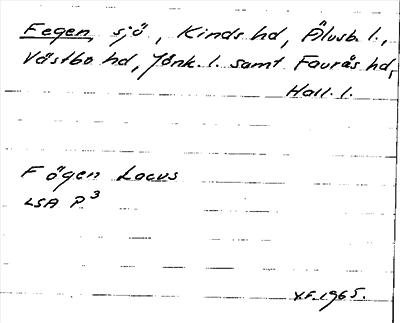 Fegen, sjö, Kinds hd, Älvsb. l.,
Västbo hd, Jönk. l. samt Faurås hd,
Hall. l.
Fögen Lacus
LSA P³
V.F. 1965.